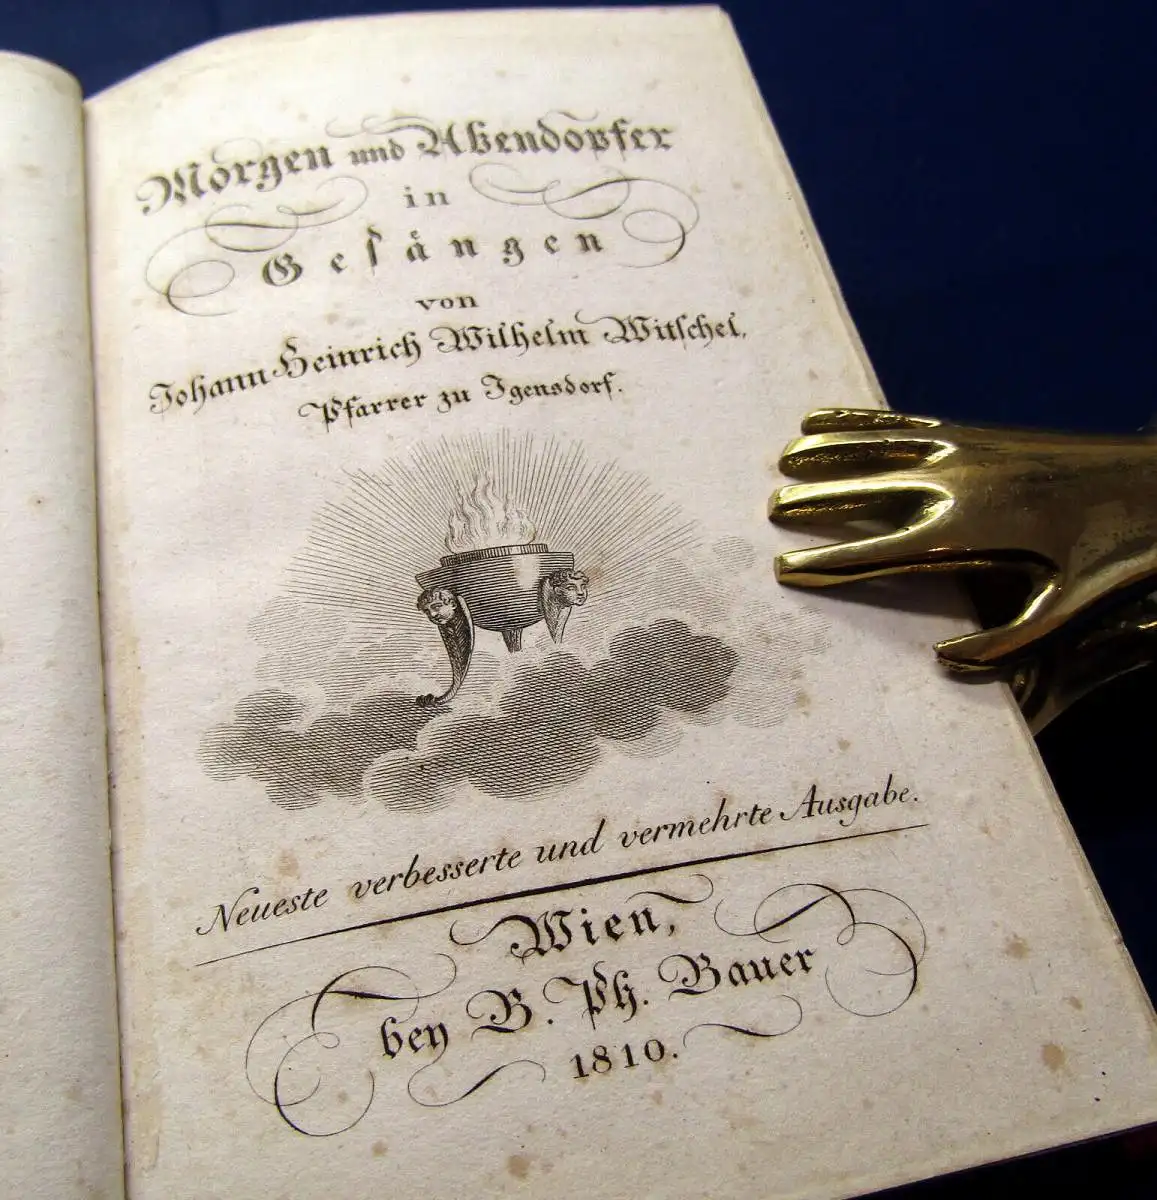 Morgen und Abendopfer
in
Gesängen
von
Johann Heinrich Wilhelm Witschel,
Pfarrer zu Igensdorf.
Neueste verbesserte und vermehrte Ausgabe.
Wien,
bey B. Ph. Bauer
1810.